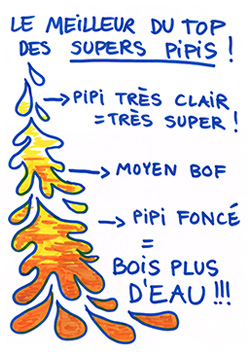 LE MEILLEUR DU TOP
DES SUPERS PIPIS !
→ PIPI TRÈS CLAIR
= TRÈS SUPER !
→ MOYEN BOF
→ PIPI FONCÉ
=
BOIS PLUS
D'EAU !!!